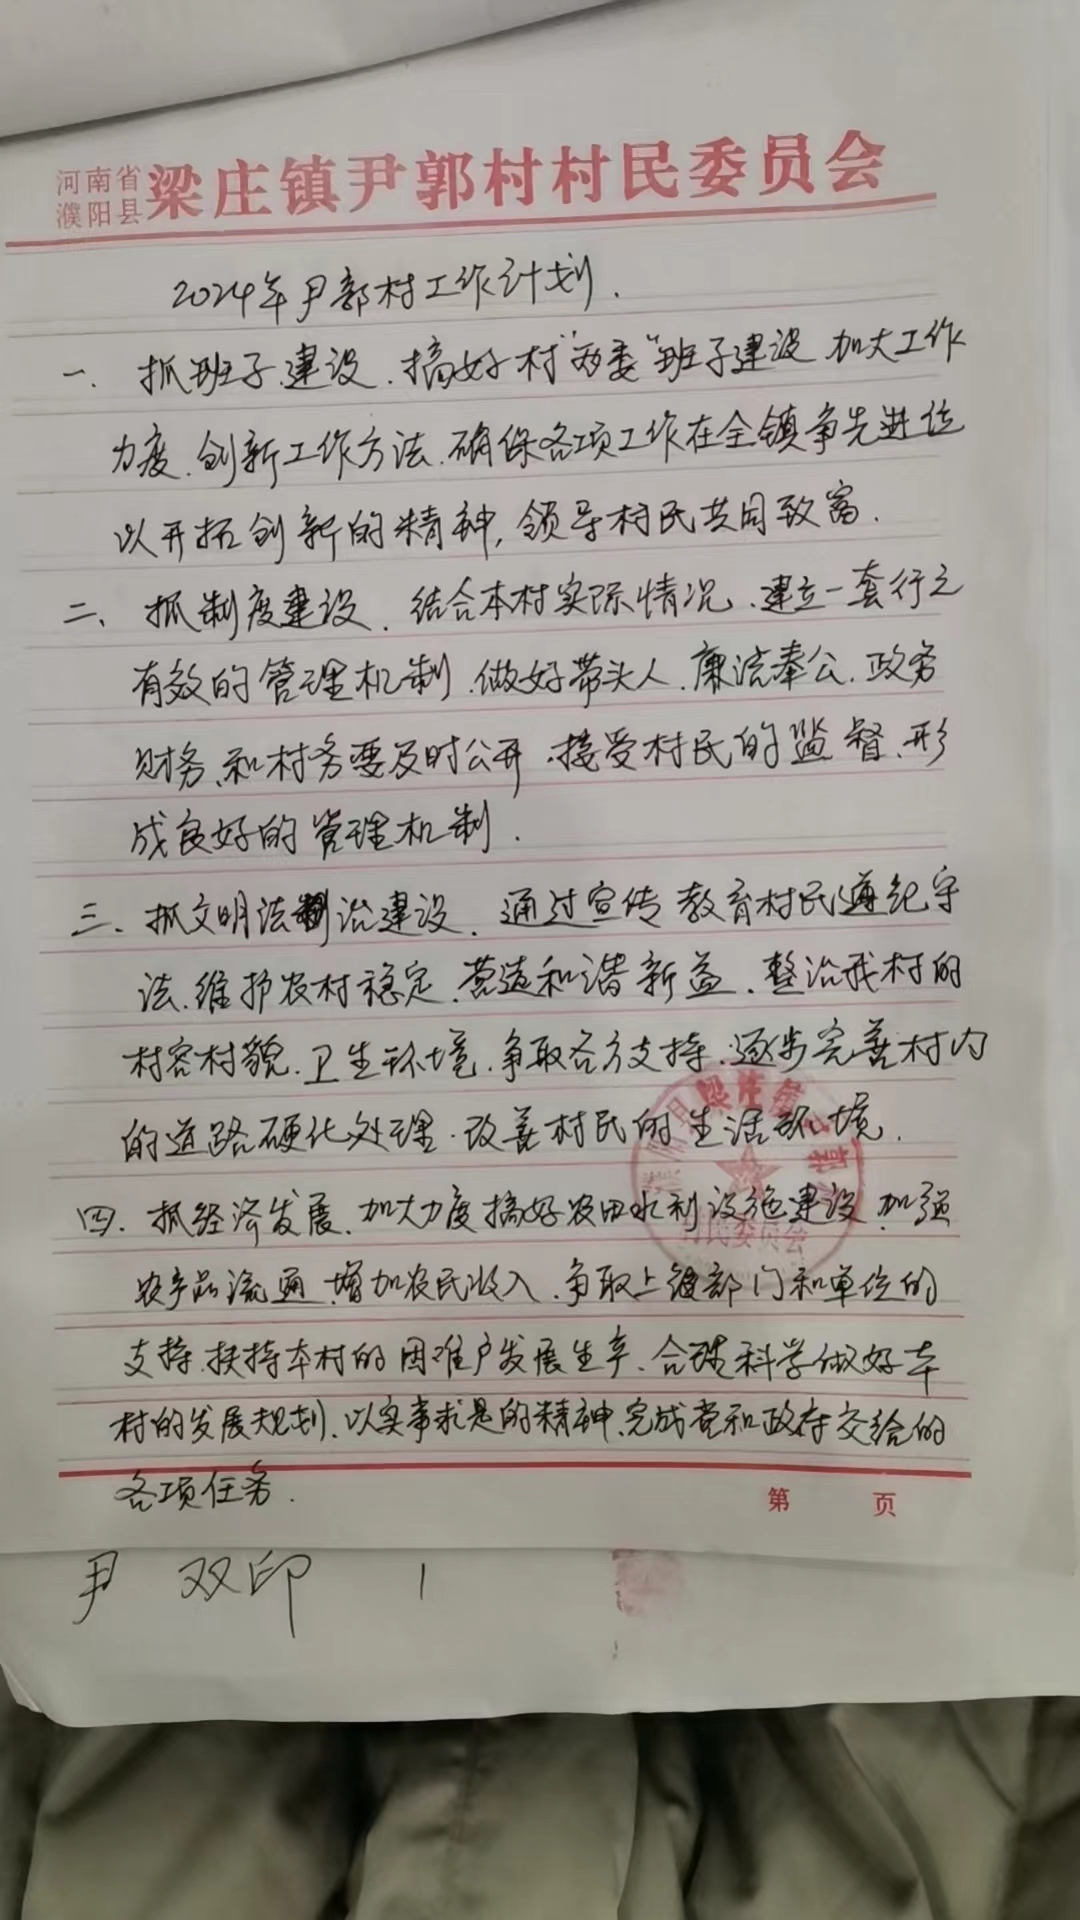 河南省
濮阳县
梁庄镇尹郭村村民委员会
2024年尹郭村工作计划.
一、抓班子建设、搞好村“两委”班子建设 加大工作
力度、创新工作方法、确保各项工作在全镇争先进位
以开拓创新的精神，领导村民共同致富.
二、抓制度建设、结合本村实际情况、建立一套行之
有效的管理机制、做好带头人、廉洁奉公、政务
财务、和村务要及时公开、接受村民的监督、形
成良好的管理机制.
三、抓文明法治建设、通过宣传教育村民遵纪守
法、维护农村稳定、营造和谐新益、整治我村的
村容村貌、卫生环境、争取各方支持、逐步完善村内
的道路硬化处理、改善村民的生活环境.
四、抓经济发展、加大力度搞好农田水利设施建设、加强
农产品流通、增加农民收入、争取上级部门和单位的
支持、扶持本村的困难户发展生产、合理科学做好本
村的发展规划、以实事求是的精神、完成党和政府交给的
各项任务.
第 页
梁庄镇
村民委员会
尹双印